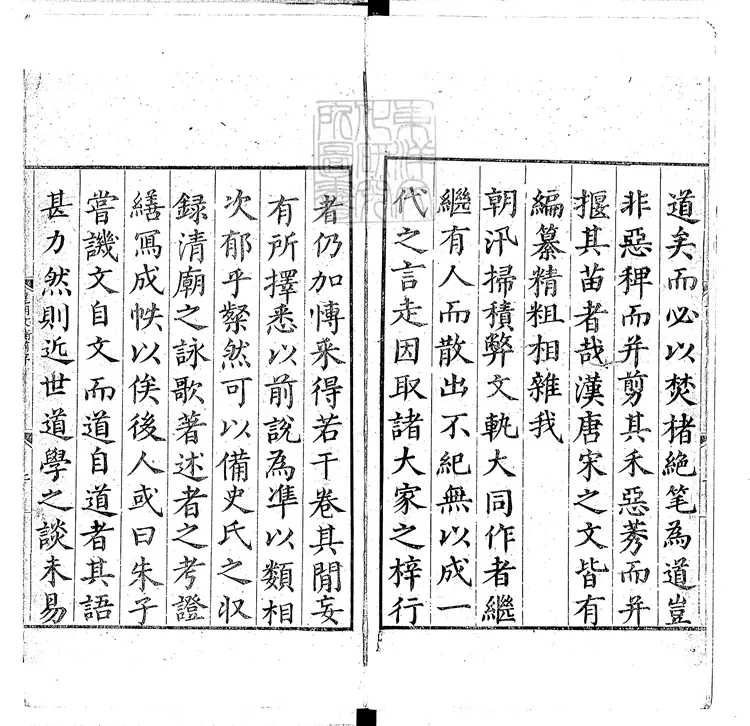 道矣而必以焚楮絕笔為道豈
非惡稗而并剪其禾惡莠而并
揠其苗者哉漢唐宋之文皆有
編纂精粗相雜我
朝汛掃積弊文軌大同作者繼
繼有人而散出不紀無以成一
代之言走因取諸大家之梓行
者仍加慱采得若干卷其閒妄
有所擇悉以前說為凖以類相
次郁乎粲然可以備史氏之収
録清廟之詠歌著述者之考證
繕寫成帙以俟後人或曰朱子
嘗譏文自文而道自道者其語
甚力然則近世道學之談未易
東洋文化研究所圖書